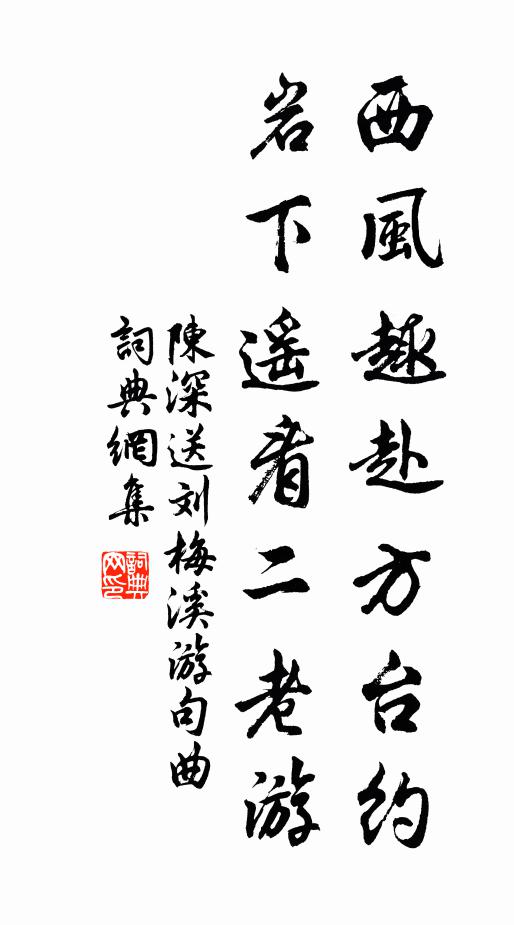 西風趣赴方台約
岩下遥看二老游
陳深送刘梅溪游句曲
詞典網集
詞典網印